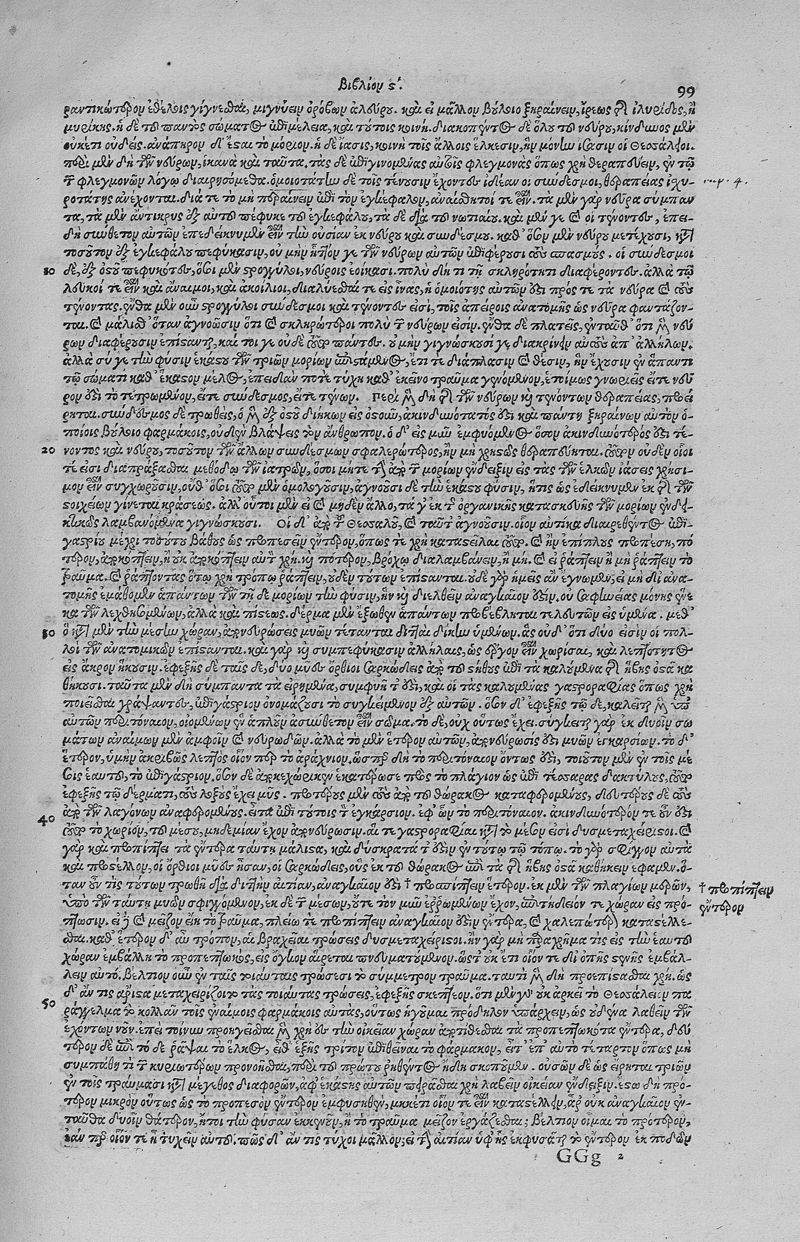 Βιβλίου ς΄.
99
ραντικώτερον ἐθέλοις γίγνεσθαι, μιγνύειν ὀρόβων ἀλεύρου. καὶ εἰ μᾶλλον βούλοιο ξηραίνειν, ἴρεως τῆς ἰλυρίδος, ἢ
μυρίκης. ἡ δὲ τοῦ παντὸς σώματος ἐπιμέλεια, καὶ τούτοις κοινή. διακοπέντος δὲ ὅλου τοῦ νεύρου, κίνδυνος μὲν
οὐκέτι οὐδείς. ἀνάπηρον δ᾽ ἔσται τὸ μόριον. ἡ δὲ ἴασις, κοινὴ τοῖς ἄλλοις ἕλκεσιν, ἣν μόνην ἴσασιν οἱ Θεσσάλειοι.
περὶ μὲν δὴ τῶν νεύρων, ἱκανὰ καὶ ταῦτα. τὰς δὲ ἐπιγινομένας αὐτοῖς φλεγμονὰς ὅπως χρὴ θεραπεύειν, ἐν τῷ
τῶν φλεγμονῶν λόγῳ διαιρησόμεθα. ὁμοιοτάτην δὲ τοῖς τένουσιν ἔχοντες ἰδέαν οἱ σύνδεσμοι, θεραπείας ἰσχυ-
ροτάτης ἀνέχονται. διά τε τὸ μὴ περαίνειν ἐπὶ τὸν ἐγκέφαλον, ἀναίσθητοί τε εἶναι. τὰ μὲν γὰρ νεῦρα σύμπαν
τα, τὰ μὲν ἄντικρυς ἐξ αὐτοῦ πέφυκε τοῦ ἐγκεφάλου, τὰ δὲ διὰ τοῦ νωτιαίου. καὶ μὲν γε καὶ οἱ τένοντες, ἐπει-
δὴ σύνθετον αὐτῶν ἐπεδείκνυμεν εἶναι τὴν οὐσίαν ἐκ νεύρου καὶ συνδέσμου. καθ᾽ ὅσον μὲν νεύρου μετέχουσι, κατὰ
τοσοῦτον ἐξ ἐγκεφάλου πεφύκασιν, οὐ μὴν ἧττόν γε τῶν νεύρων αὐτῶν ἐπιφέρουσι τοὺς σπασμούς. οἱ σύνδεσμοι
10 δὲ, ἐξ ὀστοῦ πεφυκότες, ὅσοι μὲν στρογγύλοι, νεύροις ἐοίκασι. πολὺ δή τι τῇ σκληρότητι διαφέροντες. ἀλλὰ τῷ
λευκοί τε εἶναι καὶ ἄναιμοι, καὶ ἀκοίλιοι, διαλύεσθαί τε εἰς ἶνας, ἡ ὁμοιότης αὐτῶν ἐστι πρός τε τὰ νεῦρα καὶ τοὺς
τένοντας. ἔνθα μὲν οὖν στρογγύλοι σύνδεσμοι καὶ τένοντές εἰσι, τοῖς ἀπείροις ἀνατομῆς ὡς νεῦρα φαντάζον-
ται. καὶ μάλισθ᾽ ὅταν ἀγνοῶσιν ὅτι καὶ σκληρότεροι πολὺ τῶν νεύρων εἰσίν. ἔνθα δὲ πλατεῖς, ἐνταῦθ᾽ ὅτι μὲν νεύ
ρων διαφέρουσιν ἐπίστανται, καί τοι γε οὐδὲ τοῦτο πάντες. οὐ μὴν γιγνώσκουσί γε διακρίνειν αὐτοὺς ἀπ᾽ ἀλλήλων.
ἀλλὰ σύ γε τὴν φύσιν ἑκάστου τῶν τριῶν μορίων ἐπιστάμενος, ἔτι τε διάπλασιν καὶ θέσιν, ἣν ἔχουσιν ἐν ἅπαντι
τῷ σώματι καθ᾽ ἕκαστον μέλος, ἐπειδάν ποτε τύχῃ κατ᾽ ἐκεῖνο τραῦμα γενόμενον, ἑτοίμως γνωριεῖς εἴτε νεῦ
ρόν ἐστι τὸ τετρωμένον, εἴτε σύνδεσμος, εἴτε τένων. Περὶ μὲν δὴ τῆς τῶν νεύρων καὶ τενόντων θεραπείας, προεί
ρηται. σύνδεσμος δὲ τρωθεὶς, ὁ μὲν ἐξ ὀστοῦ διήκων εἰς ὀστοῦν, ἀκινδυνότατός ἐστι καὶ πάντη ξηραίνων αὐτὸν ὁ-
ποίοις βούλοιο φαρμάκοις, οὐδὲν βλάψεις τὸν ἄνθρωπον. ὁ δ᾽ εἰς μῦν ἐμφυόμενος ὅσον ἀκινδυνότερός ἐστι τέ-
20 νοντος καὶ νεύρου, τοσοῦτον τῶν ἄλλων συνδέσμων σφαλερώτερος, ἢν μὴ χρηστῶς θεραπεύηται. τοῦτο οὐδὲν οἷοί
τέ εἰσι διαπράξασθαι μεθόδῳ τῶν ἰατρῶν, ὅσοι μήτε τὴν ἀπὸ τῶν μορίων ἔνδειξιν εἰς τὰς τῶν ἑλκῶν ἰάσεις χρήσι-
μον εἶναι συγχωροῦσιν, οὔθ᾽ ὅσοι τοῦτο μὲν ὁμολογοῦσιν, ἀγνοοῦσι δὲ τὴν ἑκάστου φύσιν, ἥτις ὡς ἐδείκνυμεν ἐκ τῆς τῶν
στοιχείων γίνεται κράσεως. ἀλλ᾽ οὗτοι μὲν εἰ καὶ μηδὲν ἄλλο, τά γ᾽ ἐκ τῆς ὀργανικῆς κατασκευῆς τῶν μορίων ἐνδει-
κτικῶς λαμβανόμενα γιγνώσκουσι. Οἱ δ᾽ ἀπὸ τοῦ Θεσσαλοῦ, καὶ ταῦτ᾽ ἀγνοοῦσιν. οἷον αὐτίκα διαιρεθέντος ἐπι-
γαστρίου μέχρι τοσούτου βάθους ὡς προπεσεῖν ἔντερον, ὅπως τε χρὴ καταστεῖλαι τοῦτο. καὶ ἢν ἐπίπλους προπέσῃ, πό
τερον, ἀποκόπτειν, ἢ οὐκ ἀποκόπτειν αὐτὸν χρή. καὶ πότερον, βρόχῳ διαλαμβάνειν, ἢ μή. καὶ εἰ ῥάπτειν ἢ μὴ ῥάπτειν τὸ
τραῦμα. καὶ ῥάπτοντας ὅτῳ χρὴ τρόπῳ ῥάπτειν, οὐδὲν τούτων ἐπίστανται. οὐδὲ γὰρ ἡμεῖς ἂν ἔγνωμεν, εἰ μὴ δι᾽ ἀνα-
τομῆς ἐμάθομεν ἁπάντων τῶν τῇδε μορίων τὴν φύσιν, ἣν καὶ διελθεῖν ἀναγκαῖόν ἐστιν, οὐ σαφηνείας μόνης ἕνε
κα τῶν λεχθησομένων, ἀλλὰ καὶ πίστεως. δέρμα μὲν ἔξωθεν ἁπάντων προβέβληται τελευτῶν εἰς ὑμένα. μεθ᾽
30 ὃ κατὰ μὲν τὴν μέσην χώραν, ἀπονευρώσεις μυῶν τέτανται διτταὶ δίκην ὑμένων. ἃς οὐδ᾽ ὅτι δύο εἰσὶν οἱ πολ-
λοὶ τῶν ἀνατομικῶν ἐπίστανται. καὶ γὰρ καὶ συμπεφύκασιν ἀλλήλαις, ὡς ἔργον εἶναι χωρίσαι, καὶ λεπτότητος
εἰς ἄκρον ἥκουσιν. ἐφεξῆς δὲ ταῖσδε, δύο μύες ὄρθιοι σαρκώδεις ἀπὸ τοῦ στήθους ἐπὶ τὰ καλούμενα τῆς ἥβης ὀστᾶ κα
θήκουσι. ταῦτα μὲν δὴ σύμπαντα τὰ εἰρημένα, συμφυῆ τ᾽ ἐστι, καὶ οἱ τὰς καλουμένας γαστροραφίας ὅπως χρὴ
ποιεῖσθαι γράψαντες, ἐπιγάστριον ὀνομάζουσι τὸ συγκείμενον ἐξ αὐτῶν. ὅσον δ᾽ ἐφεξῆς τῷδε, καλεῖται μὲν ὑπ᾽
αὐτῶν περιτόναιον, οἰομένων ἓν ἁπλοῦν ἀσύνθετον εἶναι σῶμα. τὸ δὲ, οὐχ οὕτως ἔχει. σύγκειται γὰρ ἐκ δυοῖν σω
μάτων ἀναίμων μὲν ἀμφοῖν καὶ νευρωδῶν. ἀλλὰ τὸ μὲν ἕτερον αὐτῶν, ἀπονεύρωσίς ἐστι μυῶν ἐγκαρσίων. τὸ δ᾽
ἕτερον, ὑμὴν ἀκριβῶς λεπτὸς οἷόν περ τὸ ἀράχνιον, ὥσπερ δὴ τὸ περιτόναιον ὄντως ἐστι, τοιοῦτον μὲν ἐν τοῖς μέ
σοις ἑαυτοῦ, τὸ ἐπιγάστριον. ὅσον δὲ ἀποκεχώρηκεν ἑκατέρωσε πρὸς τὸ πλάγιον ὡς ἐπὶ τέσσαρας δακτύλους, τοῦτο
ἐφεξῆς τῷ δέρματι, τοὺς λοξοὺς ἔχει μῦς. προτέρους μὲν τοὺς ἀπὸ τοῦ θώρακος καταφερομένους, δευτέρους δὲ τοὺς
ἀπὸ τῶν λαγόνων ἀναφερομένους. εἶτα ἐπὶ τούτοις τὸν ἐγκάρσιον. ἐφ᾽ ὧν τὸ περιτόναιον. ἀκινδυνότερόν τε οὖν ἐστι
40 τοῦτο τὸ χωρίον, τοῦ μέσου, μηδεμίαν ἔχον ἀπονεύρωσιν. αἵ τε γαστροραφίαι κατὰ τὸ μέσον εἰσὶ δυσμεταχείριστοι. καὶ
γὰρ καὶ προπίπτει τὰ ἔντερα ταύτῃ μάλιστα, καὶ δυσκράτητά ἐστιν ἐν τούτῳ τῷ τόπῳ. τὸ γὰρ σφίγγον αὐτὰ
καὶ προστέλλον, οἱ ὄρθιοι μύες ἦσαν, οἱ σαρκώδεις, οὓς ἐκ τοῦ θώρακος ἐπὶ τὰ τῆς ἥβης ὀστᾶ καθήκειν ἔφαμεν. ὅ-
ταν οὖν τις τούτων τρωθῇ διὰ διττὴν αἰτίαν, ἀναγκαῖόν ἐστι † προπίπτειν ἕτερον. ἐκ μὲν τῶν πλαγίων μερῶν,
ὑπὸ τῶν ταύτῃ μυῶν σφιγγόμενον, ἐκ δὲ τῶν μέσων, οὔτε τὸν μῦν ἐῤῥωμένον ἔχον, ἐπιτήδειόν τε χώραν εἰς πρό-
πτωσιν. εἰ δὲ καὶ μεῖζον εἴη τὸ τραῦμα, πλείω τε προπίπτειν ἀναγκαῖόν ἐστιν ἔντερα, καὶ χαλεπώτερον καταστέλλε-
σθαι. καθ᾽ ἕτερον δ᾽ αὖ τρόπον, αἱ βραχεῖαι τρώσεις δυσμεταχείριστοι. ἢν γὰρ μὴ παραχρῆμά τις εἰς τὴν ἑαυτοῦ
χώραν ἐμβάλλῃ τὸ προπεπτωκὸς, εἰς ὄγκον αἴρεται πνευματούμενον. ὥστ᾽ οὐκέτι οἷόν τε δι᾽ ὀπῆς στενῆς ἐμβάλ-
λειν αὐτό. βέλτιον οὖν ἐν ταῖς τοιαύταις τρώσεσι τὸ σύμμετρον τραῦμα. ταυτὶ μὲν δὴ χρὴ προεπίστασθαι. ὡς
δ᾽ ἄν τις ἄριστα μεταχειρίζοιτο τὰς τοιαύτας τρώσεις, ἐφεξῆς σκεπτέον. ὅτι μὲν γὰρ οὐκ ἀρκεῖ τὸ Θεσσάλειον πα
50 ράγγελμα τὸ κολλᾶν τοῖς ἐναίμοις φαρμάκοις αὐτὰς, οὕτως ἡγοῦμαι πρόδηλον ὑπάρχειν, ὡς οὐδένα λαθεῖν τῶν
ἐχόντων νοῦν. ἐπεὶ τοίνυν προηγεῖσθαι μὲν χρὴ ἐς τὴν οἰκείαν χώραν ἀποτίθεσθαι τὰ προπεπτωκότα ἔντερα, δεύ
τερον δὲ ἐπὶ τὸ δὲ ῥάψαι τὸ ἕλκος, εἶθ᾽ ἑξῆς τρίτον ἐπιθεῖναι τὸ φάρμακον, εἶτ᾽ ἐπ᾽ αὐτὸ τέταρτον ὅπως μὴ
συμπάθῃ τι τῶν κυριωτέρων προνοῆσθαι, περὶ τοῦ πρώτου ῥηθέντος ἤδη σκοπῶμεν. οὐσῶν δὲ ὡς εἴρηται τριῶν
ἐν τοῖς τραύμασι κατὰ μέγεθος διαφορῶν, ἀφ᾽ ἑκάστης αὐτῶν πειρᾶσθαι χρὴ λαβεῖν οἰκείαν ἔνδειξιν. ἔστω δὴ πρό-
τερον μικρὸν οὕτως ὡς τὸ προπεσὸν ἔντερον ἐμφυσηθὲν, μηκέτι οἷόν τε εἶναι καταστέλλειν, ἆρ᾽ οὐκ ἀναγκαῖον ἐν-
ταῦθα δυοῖν θάτερον, ἤτοι τὴν φύσαν ἐκκενοῦν, ἢ τὸ τραῦμα μεῖζον ἐργάζεσθαι; βέλτιον οἶμαι τὸ πρότερον,
ἐάν περ οἷόν τε ᾖ τυχεῖν αὐτοῦ. πῶς δ᾽ ἄν τις τύχοι μᾶλλον; εἰ τὴν αἰτίαν ὑφ᾽ ἧς ἐκφυσᾶται τὸ ἔντερον ἐκποδὼν
† προπίπτειν
ἔντερον
GGg 2